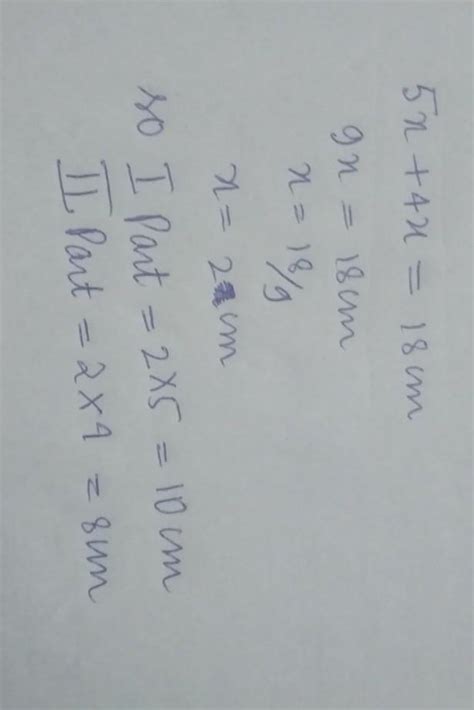 5x + 4x = 18 cm
9x = 18 cm
x = 18/9
x = 2 cm
so I Part = 2×5 = 10 cm
II Part = 2×4 = 8 cm